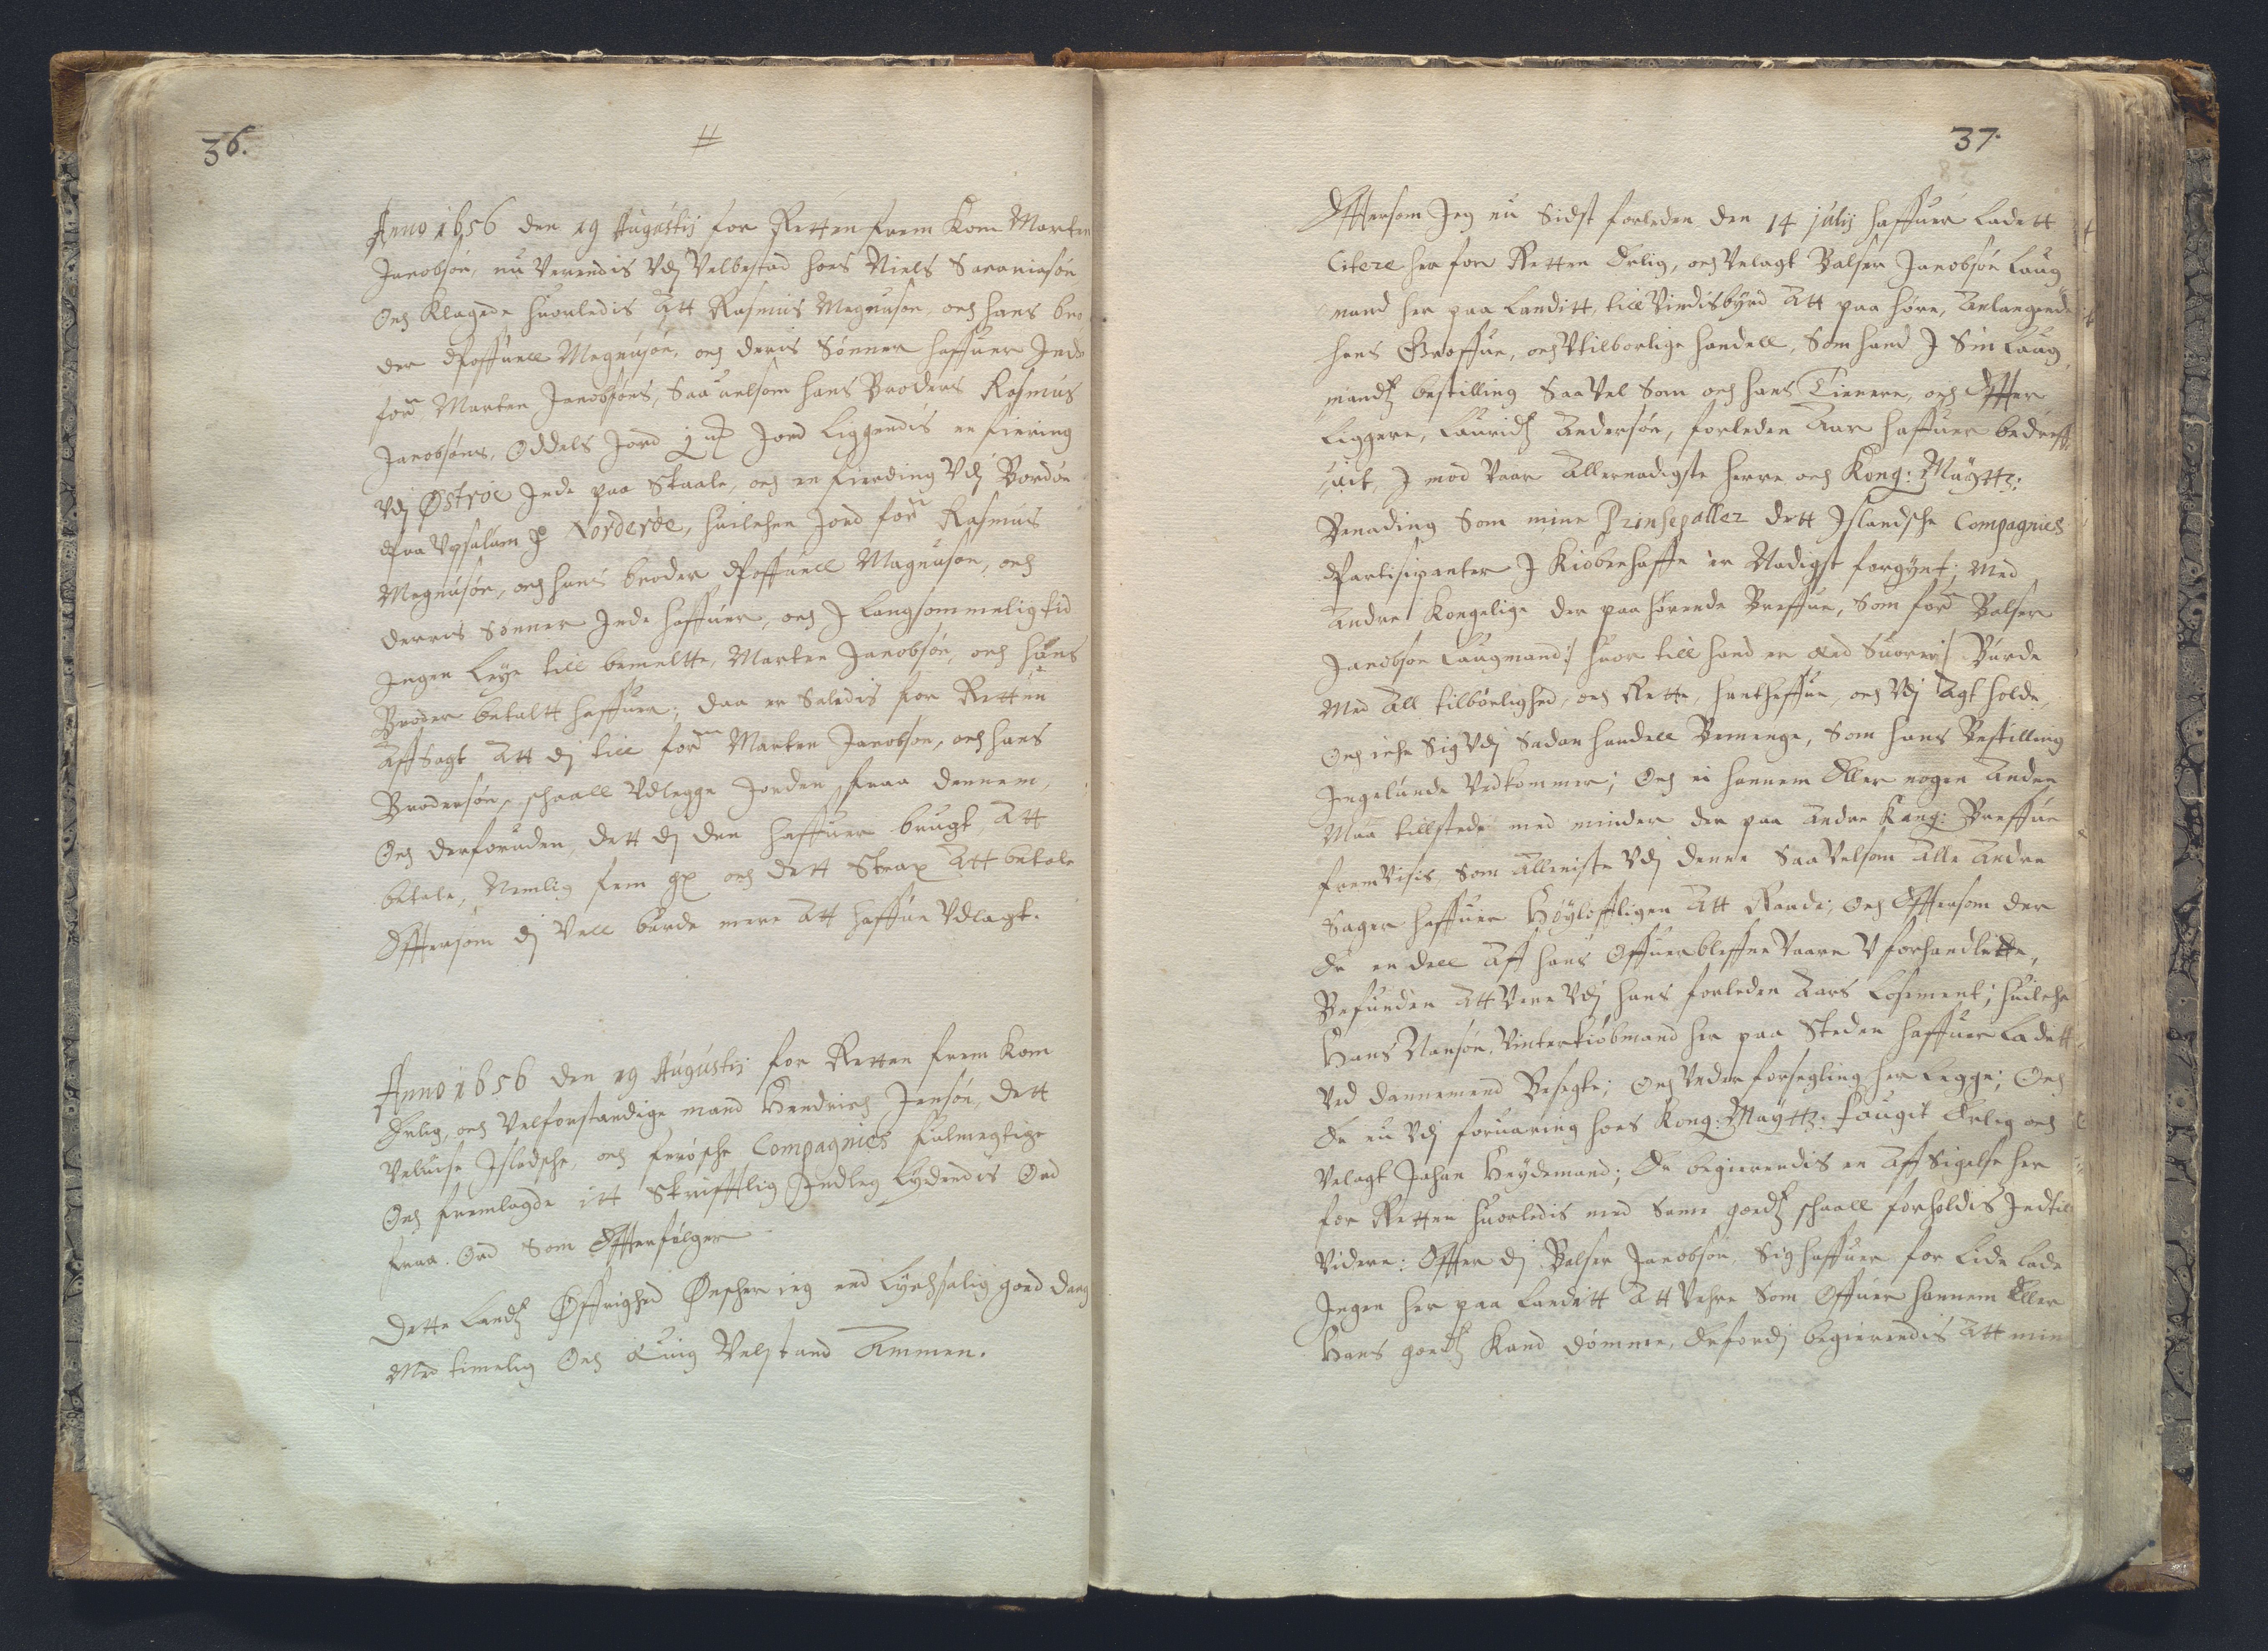 36.
Anno 1656 den 19 Augustij for Retten frem Kom Morten
Jacobsøn, nu Verendis Vdj Velbestad hoes Niels
Och Klagede huorledis Att Rasmus Magnusøn, och hans bro,
der Poffuell Magnusøn, och deris Sønner haffuer Jnde
ford Morten Jacobsøns, Saauelsom hans Broders Rasmus
Jacobsøns, Oddels Jord Jord Liggendis en fiering
Vdj Østrøe Jnde paa Skaale, och en fierding Vdj Bordøe
paa Vpsalum J Norderøe, huilchen Jord ford Rasmus
Magnusøn, och hans broder Poffuell Magnusøn, och
derris Sønner Jnde haffuer, och J Langsommelig tid
Jngen Leye till bemeltte, Morten Jacobsøn, och hans
Broder betaltt haffuer; daa er Saledis for Retten
Aff Sagt Att dj till ford Morten Jacobsøn, och hans
Brodersøn, schaall Vdlegge Jorden fraa dennem,
Och derforuden, dett dj den haffuer brugt, Att
betale, Nemlig fem gx och dett Strax Att betale
Efftersom dj Vell burde mere Att haffue Vdlagt.
Anno 1656 den 19 Augustij for Retten frem Kom
Erlig, och Velforstandige mand Hendrich Jensøn, dett
Veluise Jslandsche, och ferøsche Compagnies fulmegtige
Och fremlagde itt Skrifftlig Jndleg Lydendis Ord
fraa Ord Som Effterfølger
Dette Landtz Øffrighed Ønscher ieg end Lychsalig goed daag
Med timelig Och Euig Velstand Ammen.
37.
Efftersom Jeg nu Sidst forleden den 14 julij haffuer Ladett
Citere her for Retten Erlig, och Velagt Balser Jacobsøn Laug
mand her paa Landitt, till Vindisbyrd Att paa høre, Anlangende
hans Groffue, och Vtilborlige handell, Som hand J Sin Laug,
mandtz bestilling Saa Vel Som och hans Tienere, och Effter
Liggere, Lauridtz Andersøn, forleden Aar haffuer bedreff
uit, J mod Vaar Allernadigste herre och Kong: Mayttz:
Benading Som mine Prinsepaller dett Jslandsche Compagnies
Partisipanter J Kiøbenhaffn er Nadigst forgynt; Med
Andre Kongelige der paa hørende Breffue, Som ford Balser
Jacobsøn Laugmand :/ huor till hand er æed Suoren /: Burde
Med All tilbørlighed, och Rette, hanthæffue, och Vdj Agt holde,
Och iche Sig Vdj Sadan handell Bemenge, Som hans Bestilling
Jngelunde Vedkommer; Och ei hannem Eller nogen Anden
Maa tillstede med minder der paa Andre Kong: Breffue
fremvisis, Som Alleniste Vdj denne Saa Velsom Alle Andre
Sager haffuer Høyloffligen Att Raade; Och Efftersom der
Er en deell Aff hans Offuerbleffne Vaare Vforhandlede,
Befunden Att Vere Vdj hans forleden Aars Losement; huilche
Hans Nansøn, Vinterkiøbmand her paa Steden haffuer Ladett
Ved dannemend Besegte; Och Vnder forsegling her Legge; Och
Er nu Vdj foruaring hoes Kong: Mayttz: faugit Erlig och
Velagt Johan Heydemand; Er begierendis en Aff Sigelse her
for Retten huorledis med Same goedtz schaall forholdis Jndtil
Videre: Effter dj Balser Jacobsøn Sig haffuer for Lide Lade
Jngen her paa Landitt Att Vehre Som Offuer hannem Eller
Hans goedtz Kand dømme, Erfordj begierendis Att min